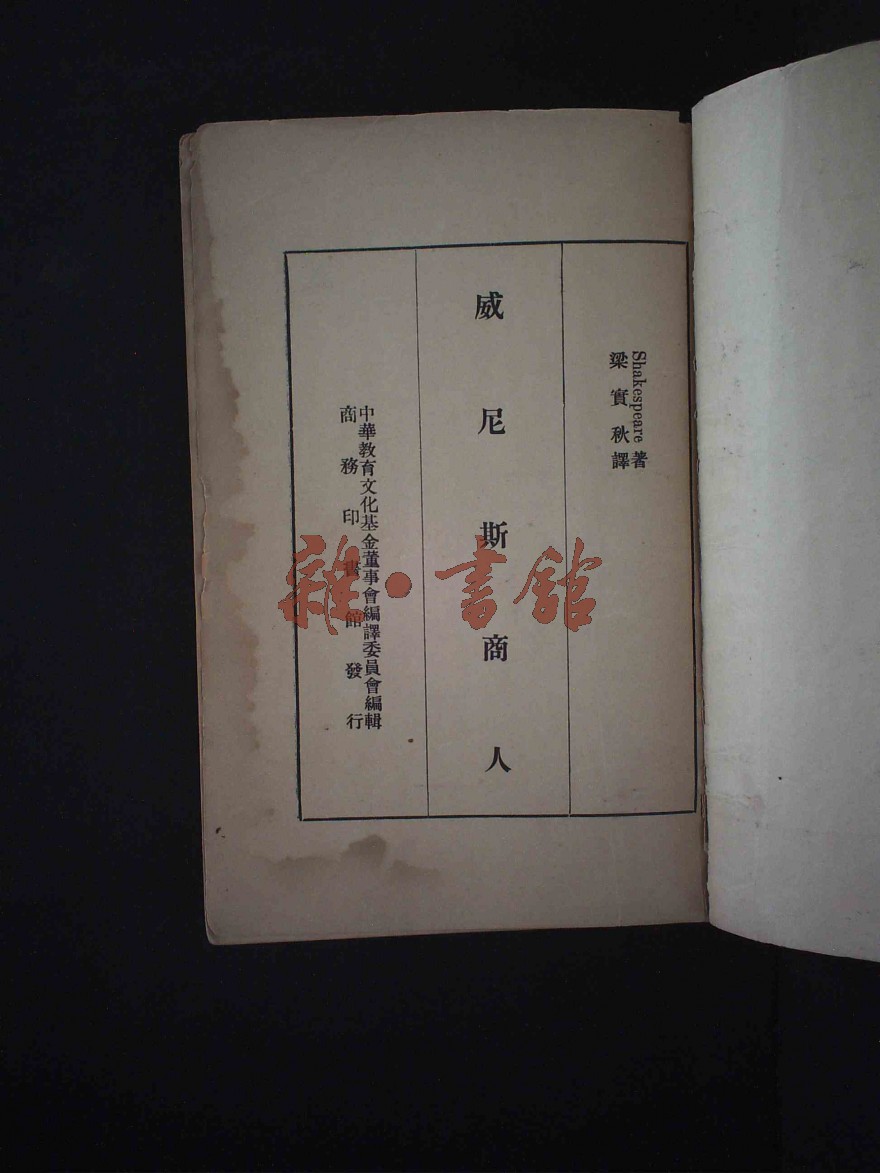 Shakespeare 著
梁實秋譯
威尼斯商人
中華教育文化基金董事會編譯委員會編輯
商務印書館發行
雜·書館